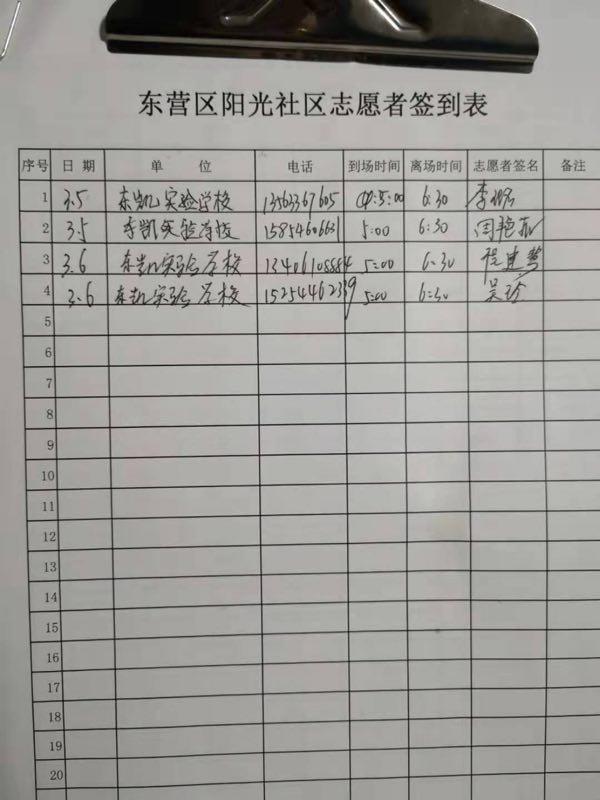 东营区阳光社区志愿者签到表
序号 日期 单位 电话 到场时间 离场时间 志愿者签名 备注
1 3.5 东凯实验学校 13563367605 5:00 6:30 李
2 3.5 东凯实验学校 15854606631 5:00 6:30 闫艳
3 3.6 东凯实验学校 13406108884 5:00 6:30 程建慧
4 3.6 东凯实验学校 15254462339 5:00 6:30 吴
5
6
7
8
9
10
11
12
13
14
15
16
17
18
19
20